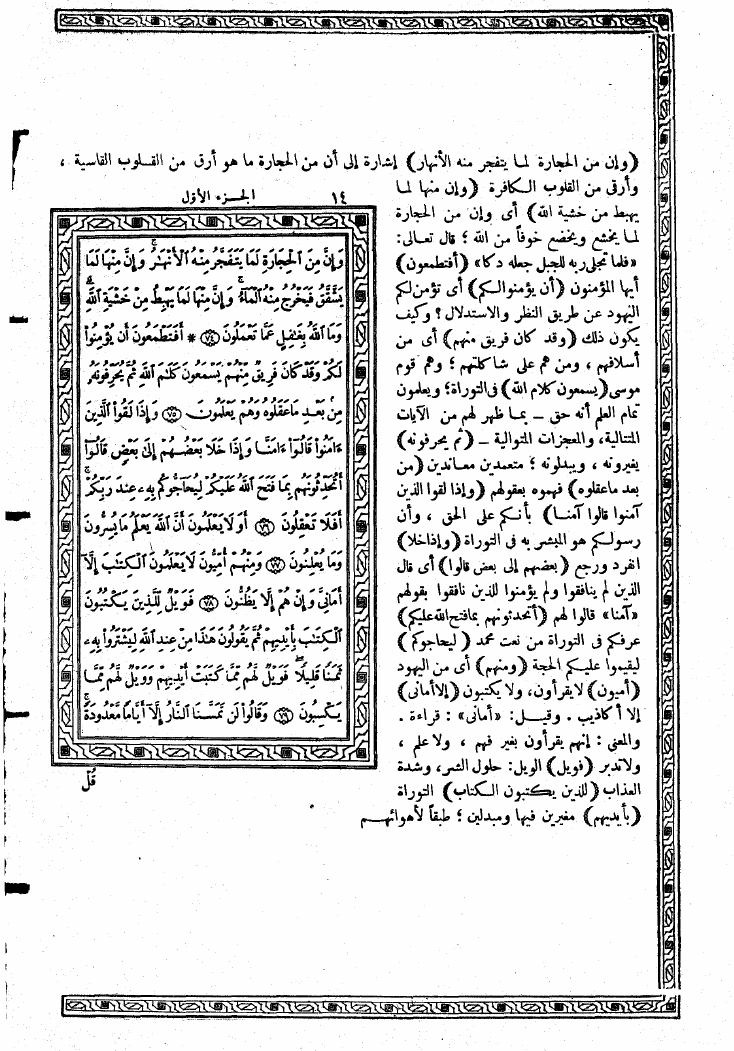 (وإن من الحجارة لما يتفجر منه الأنهار) إشارة إلى أن من الحجارة ما هو أرق من القلوب القاسية ،
وأرقى من القلوب الكافرة (وإن منها لما
يهبط من خشية الله) أى وإن من الحجارة
لما يخشع ويخضع خوفاً من الله ؛ قال تعالى:
«فلما تجلى ربه للجبل جعله دكا» (أفتطمعون)
أيها المؤمنون (أن يؤمنوا لكم) أى تؤمن لكم
اليهود عن طريق النظر والاستدلال ؟ وكيف
يكون ذلك (وقد كان فريق منهم) أى من
أسلافهم ، ومن هم على شاكلتهم ؛ وهم قوم
موسى (يسمعون كلام الله) فى التوراة؛ ويعلمون
تمام العلم أنه حق – بما ظهر لهم من الآيات
المتتالية، والمعجزات المتوالية – (ثم يحرفونه)
يغيرونه ، ويبدلونه ؛ متعمدين معاندين (من
بعد ما عقلوه) فهموه بعقولهم (وإذا لقوا الذين
آمنوا قالوا آمنا) بأنكم على الحق ، وأن
رسولكم هو المبشر به فى التوراة (وإذا خلا)
انفرد ورجع (بعضهم إلى بعض قالوا) أى قال
الذين لم ينافقوا ولم يؤمنوا للذين نافقوا بقولهم
«آمنا» قالوا لهم (أتحدثونهم بما فتح الله عليكم)
عرفكم فى التوراة من نعت محمد (ليحاجوكم)
ليقيموا عليكم الحجة (ومنهم) أى من اليهود
(أميون) لا يقرأون، ولا يكتبون (إلا أمانى)
إلا أكاذيب . وقيل: «أمانى» : قراءة .
والمعنى : إنهم يقرأون بغير فهم ، ولا علم ،
ولا تدبر (فويل) الويل: حلول الشر، وشدة
العذاب (للذين يكتبون الكتاب) التوراة
(بأيديهم) مغيرين فيها ومبدلين ؛ طبقاً لأهوائهم
١٤ الجزء الأول
وَإِنَّ مِنَ ٱلْحِجَارَةِ لَمَا يَتَفَجَّرُ مِنْهُ ٱلْأَنْهَٰرُ ۚ وَإِنَّ مِنْهَا لَمَا
يَشَّقَّقُ فَيَخْرُجُ مِنْهُ ٱلْمَآءُ ۚ وَإِنَّ مِنْهَا لَمَا يَهْبِطُ مِنْ خَشْيَةِ ٱللَّهِ ۗ
وَمَا ٱللَّهُ بِغَٰفِلٍ عَمَّا تَعْمَلُونَ ﴿٧٤﴾ * أَفَتَطْمَعُونَ أَن يُؤْمِنُوا۟
لَكُمْ وَقَدْ كَانَ فَرِيقٌ مِّنْهُمْ يَسْمَعُونَ كَلَٰمَ ٱللَّهِ ثُمَّ يُحَرِّفُونَهُۥ
مِنۢ بَعْدِ مَا عَقَلُوهُ وَهُمْ يَعْلَمُونَ ﴿٧٥﴾ وَإِذَا لَقُوا۟ ٱلَّذِينَ
ءَامَنُوا۟ قَالُوٓا۟ ءَامَنَّا وَإِذَا خَلَا بَعْضُهُمْ إِلَىٰ بَعْضٍ قَالُوٓا۟
أَتُحَدِّثُونَهُم بِمَا فَتَحَ ٱللَّهُ عَلَيْكُمْ لِيُحَآجُّوكُم بِهِۦ عِندَ رَبِّكُمْ ۚ
أَفَلَا تَعْقِلُونَ ﴿٧٦﴾ أَوَلَا يَعْلَمُونَ أَنَّ ٱللَّهَ يَعْلَمُ مَا يُسِرُّونَ
وَمَا يُعْلِنُونَ ﴿٧٧﴾ وَمِنْهُمْ أُمِّيُّونَ لَا يَعْلَمُونَ ٱلْكِتَٰبَ إِلَّآ
أَمَانِىَّ وَإِنْ هُمْ إِلَّا يَظُنُّونَ ﴿٧٨﴾ فَوَيْلٌ لِّلَّذِينَ يَكْتُبُونَ
ٱلْكِتَٰبَ بِأَيْدِيهِمْ ثُمَّ يَقُولُونَ هَٰذَا مِنْ عِندِ ٱللَّهِ لِيَشْتَرُوا۟ بِهِۦ
ثَمَنًا قَلِيلًا ۖ فَوَيْلٌ لَّهُم مِّمَّا كَتَبَتْ أَيْدِيهِمْ وَوَيْلٌ لَّهُم مِّمَّا
يَكْسِبُونَ ﴿٧٩﴾ وَقَالُوا۟ لَن تَمَسَّنَا ٱلنَّارُ إِلَّآ أَيَّامًا مَّعْدُودَةً ۚ
قُلْ